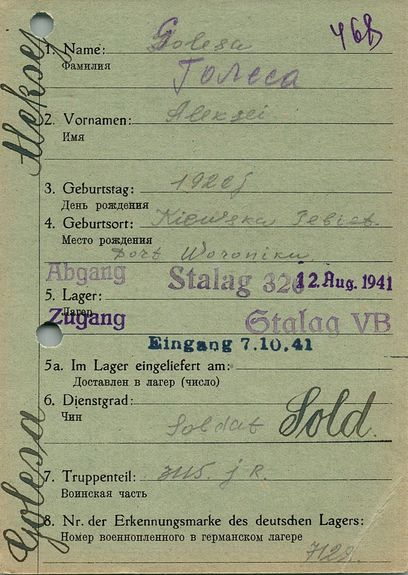 Aleksej Golesa
468
1. Name: Golesa
Фамилия Голеса
2. Vornamen: Aleksei
Имя
3. Geburtstag: 1920
День рождения
4. Geburtsort: Kiewska Gebiet
Место рождения
Dorf Woronika
Abgang Stalag 326 12. Aug. 1941
5. Lager:
Лагерь
Zugang Stalag VB
Eingang 7.10.41
5a. Im Lager eingeliefert am:
Доставлен в лагерь (число)
6. Dienstgrad: Soldat Sold.
Чин
7. Truppenteil: J.R.
Воинская часть
8. Nr. der Erkennungsmarke des deutschen Lagers:
Номер военнопленного в германском лагере